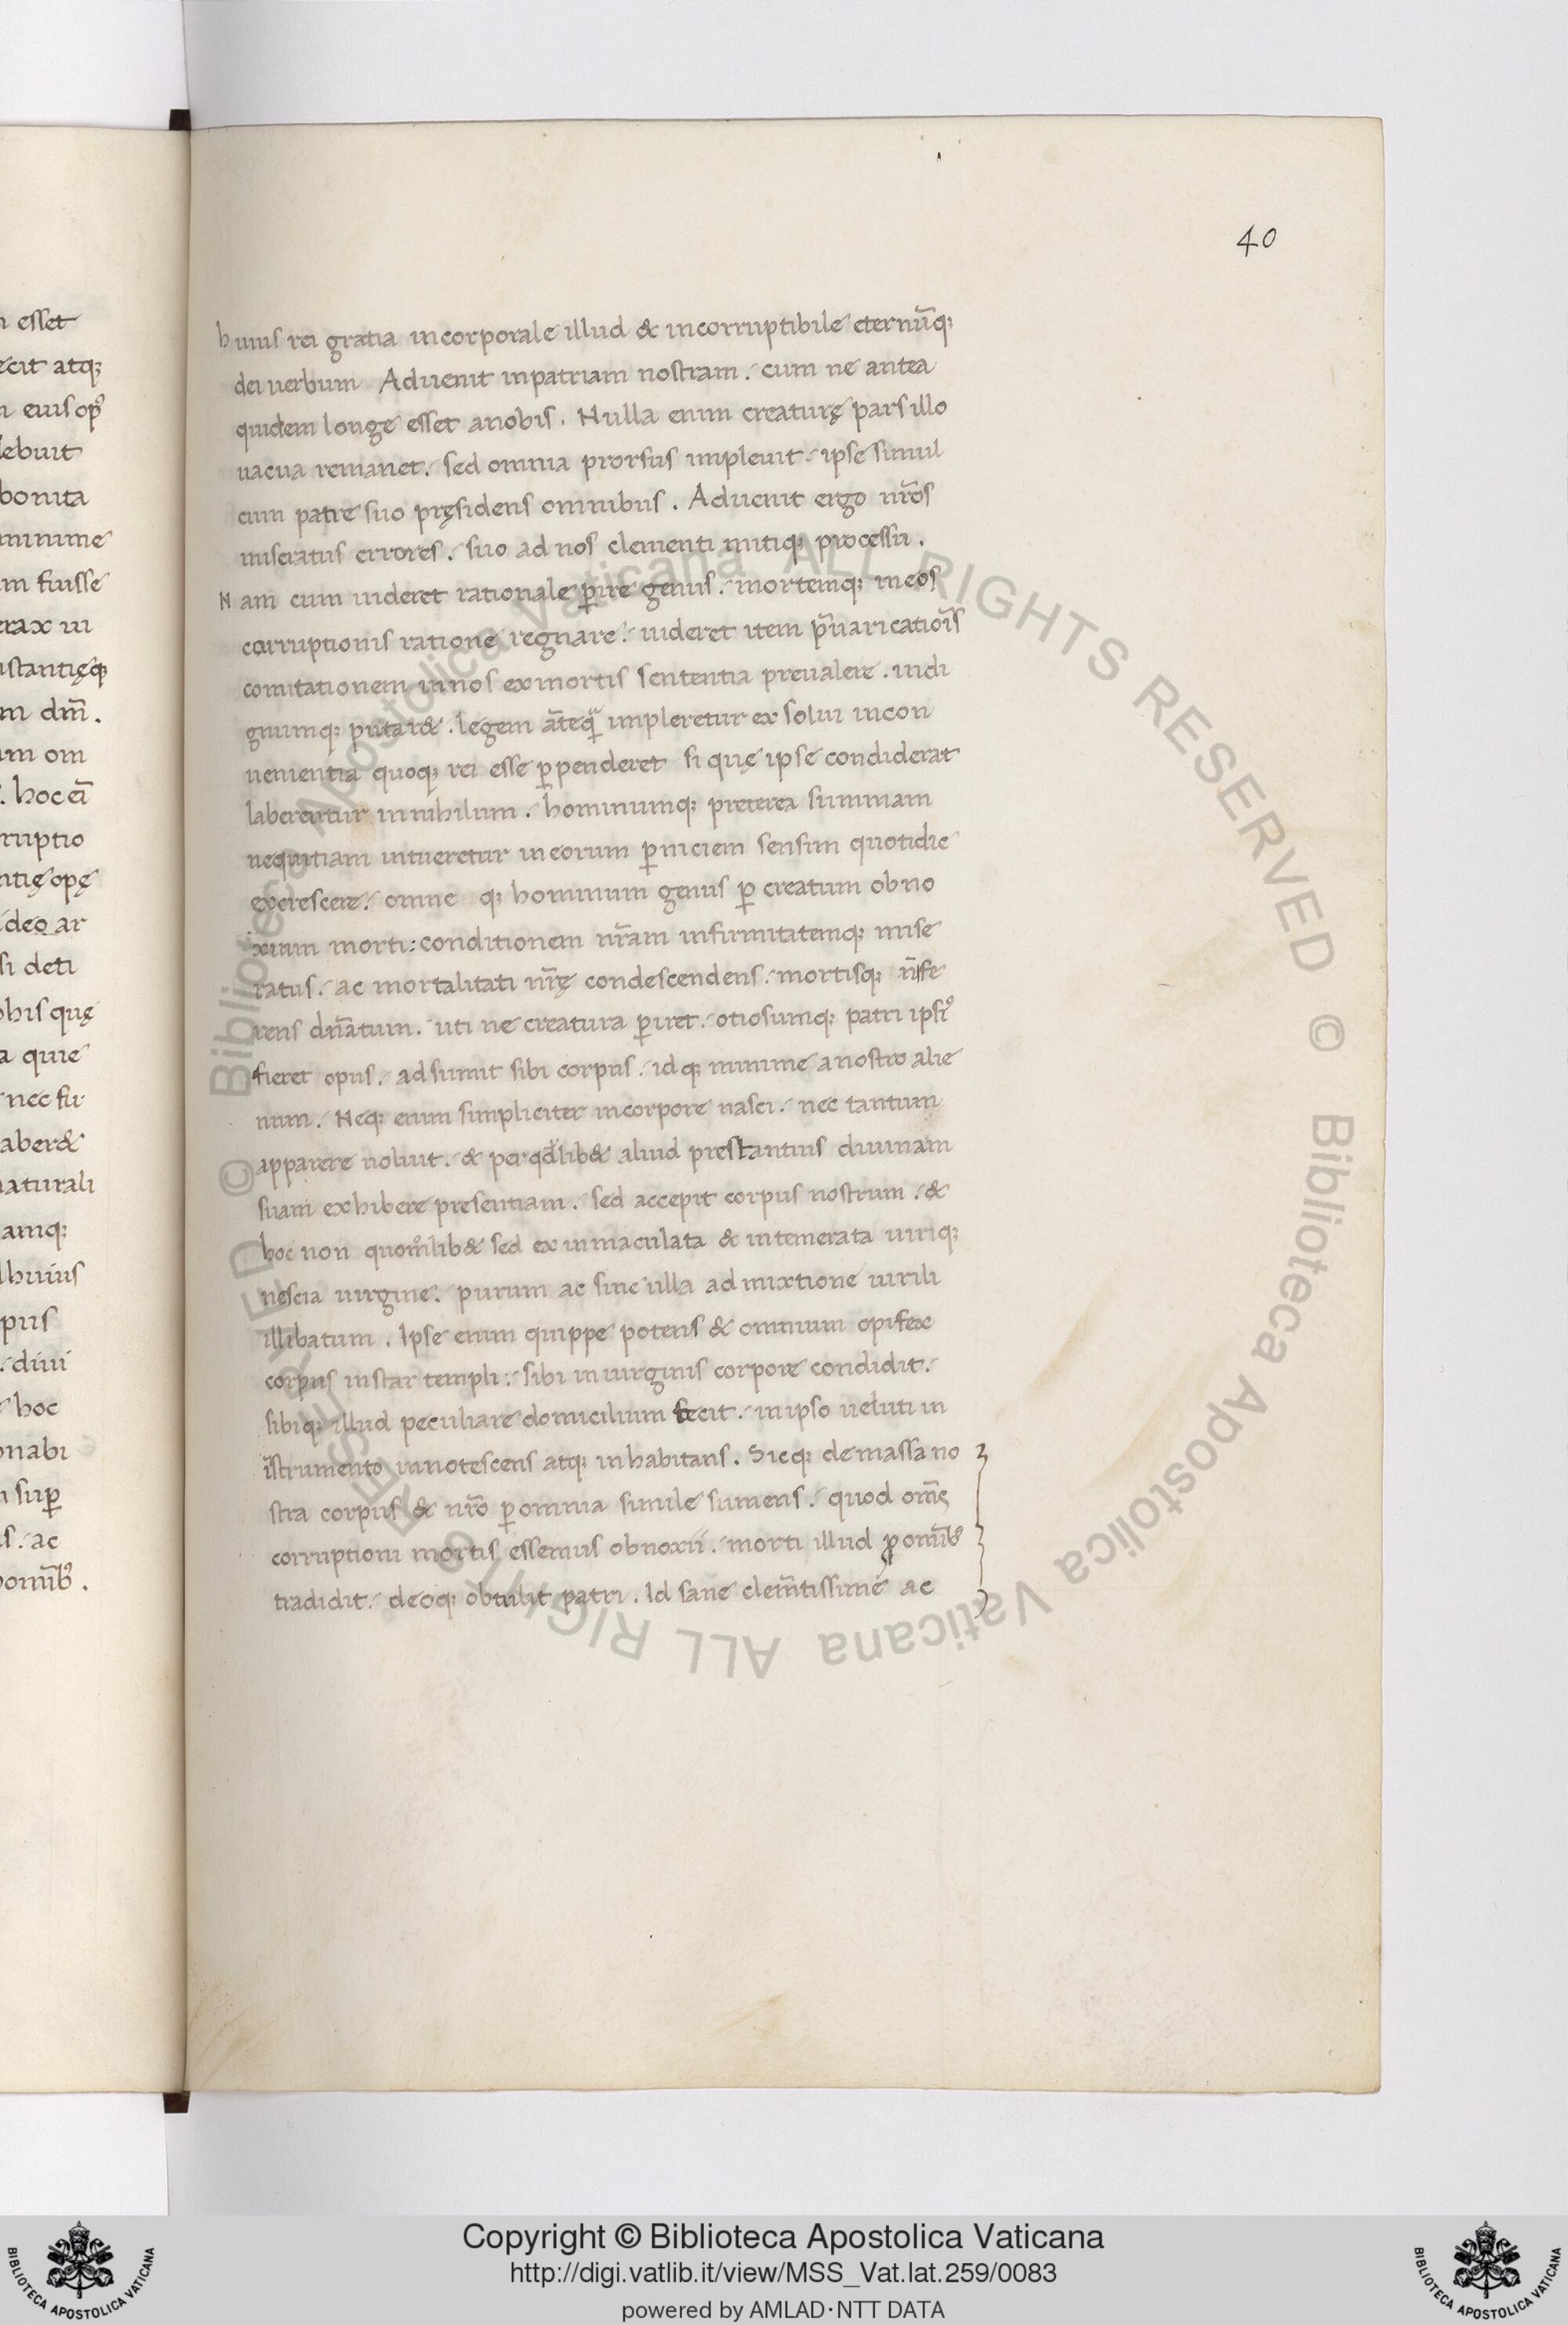 40
n esset
ecit atq;
n eius op᷒
debuit
bonita
minime
m fuisse
erax ui
stantięq;
m dm̄.
um om
. hoc eī
rruptio
ntię opę
deo ar
si deti
bis quę
a quie
nec fir
aber&
naturali
amq;
huius
pus
. diui
hoc
onabi
n sup̱
s. ac
omīb᷒.
huius rei gratia incorporale illud & incorruptibile eternūq;
dei uerbum Aduenit inpatriam nostram. cum ne antea
quidem longe esset anobis. Nulla enim creaturę pars illo
uacua remanet. sed omnia prorsus impleuit. ipse simul
cum patre suo pręsidens omnibus. Aduenit ergo nr̄os
miseratus errores. suo ad nos clementi mitiq; processu.
Nam cum uideret rationale ꝑire genus. mortemq; ineos
corruptionis ratione regnare. uideret item p̄uaricatiōis
comitationem innos exmortis sententia preualere. indi
gnumq; putar&. legem āteq̄ impleretur exsolui incon
uenientia quoq; rei esse ꝑpenderet si quę ipse condiderat
laberentur innihilum. hominumq; preterea summam
nequitiam intueretur ineorum ꝑniciem sensim quotidie
excrescere. omne q; hominum genus ꝑ creatum obno
xium morti: conditionem nr̄am infirmitatemq; mise
ratus. ac mortalitati nr̄ę condescendens. mortisq; n̄ fe
rens dn̄atum. uti ne creatura ꝑiret. otiosumq; patri ipsi᷒
fieret opus. adsumit sibi corpus. idq; minime anostro alie
num. Neq; enim simpliciter incorpore nasci. nec tantum
apparere uoluit. & per qd̄lib& aliud prestantius diuinam
suam exhibere presentiam. sed accepit corpus nostrum. &
hoc non quom̊lib& sed ex inmaculata & intemerata uiriq;
nescia uirgine. purum ac sine ulla admixtione uirili
illibatum. Ipse enim quippe potens & omnium opifex
corpus instar templi. sibi inuirginis corpore condidit.
sibiq; illud peculiare domicilium fecit. inipso ueluti in
īstrumento innotescens atq; inhabitans. Sicq; demassa no
stra corpus & nr̄o ꝑomnia simile sumens. quod om̄s
corruptioni mortis essemus obnoxii. morti illud ꝓ omīb᷒
tradidit. deoq; obtulit patri. Id sane clem̄tissime ac
© Biblioteca Apostolica Vaticana ALL RIGHTS RESERVED © Biblioteca Apostolica Vaticana ALL RIGHTS RESERVED
Copyright © Biblioteca Apostolica Vaticana
http://digi.vatlib.it/view/MSS_Vat.lat.259/0083
powered by AMLAD·NTT DATA
BIBLIOTECA APOSTOLICA VATICANA
BIBLIOTECA APOSTOLICA VATICANA